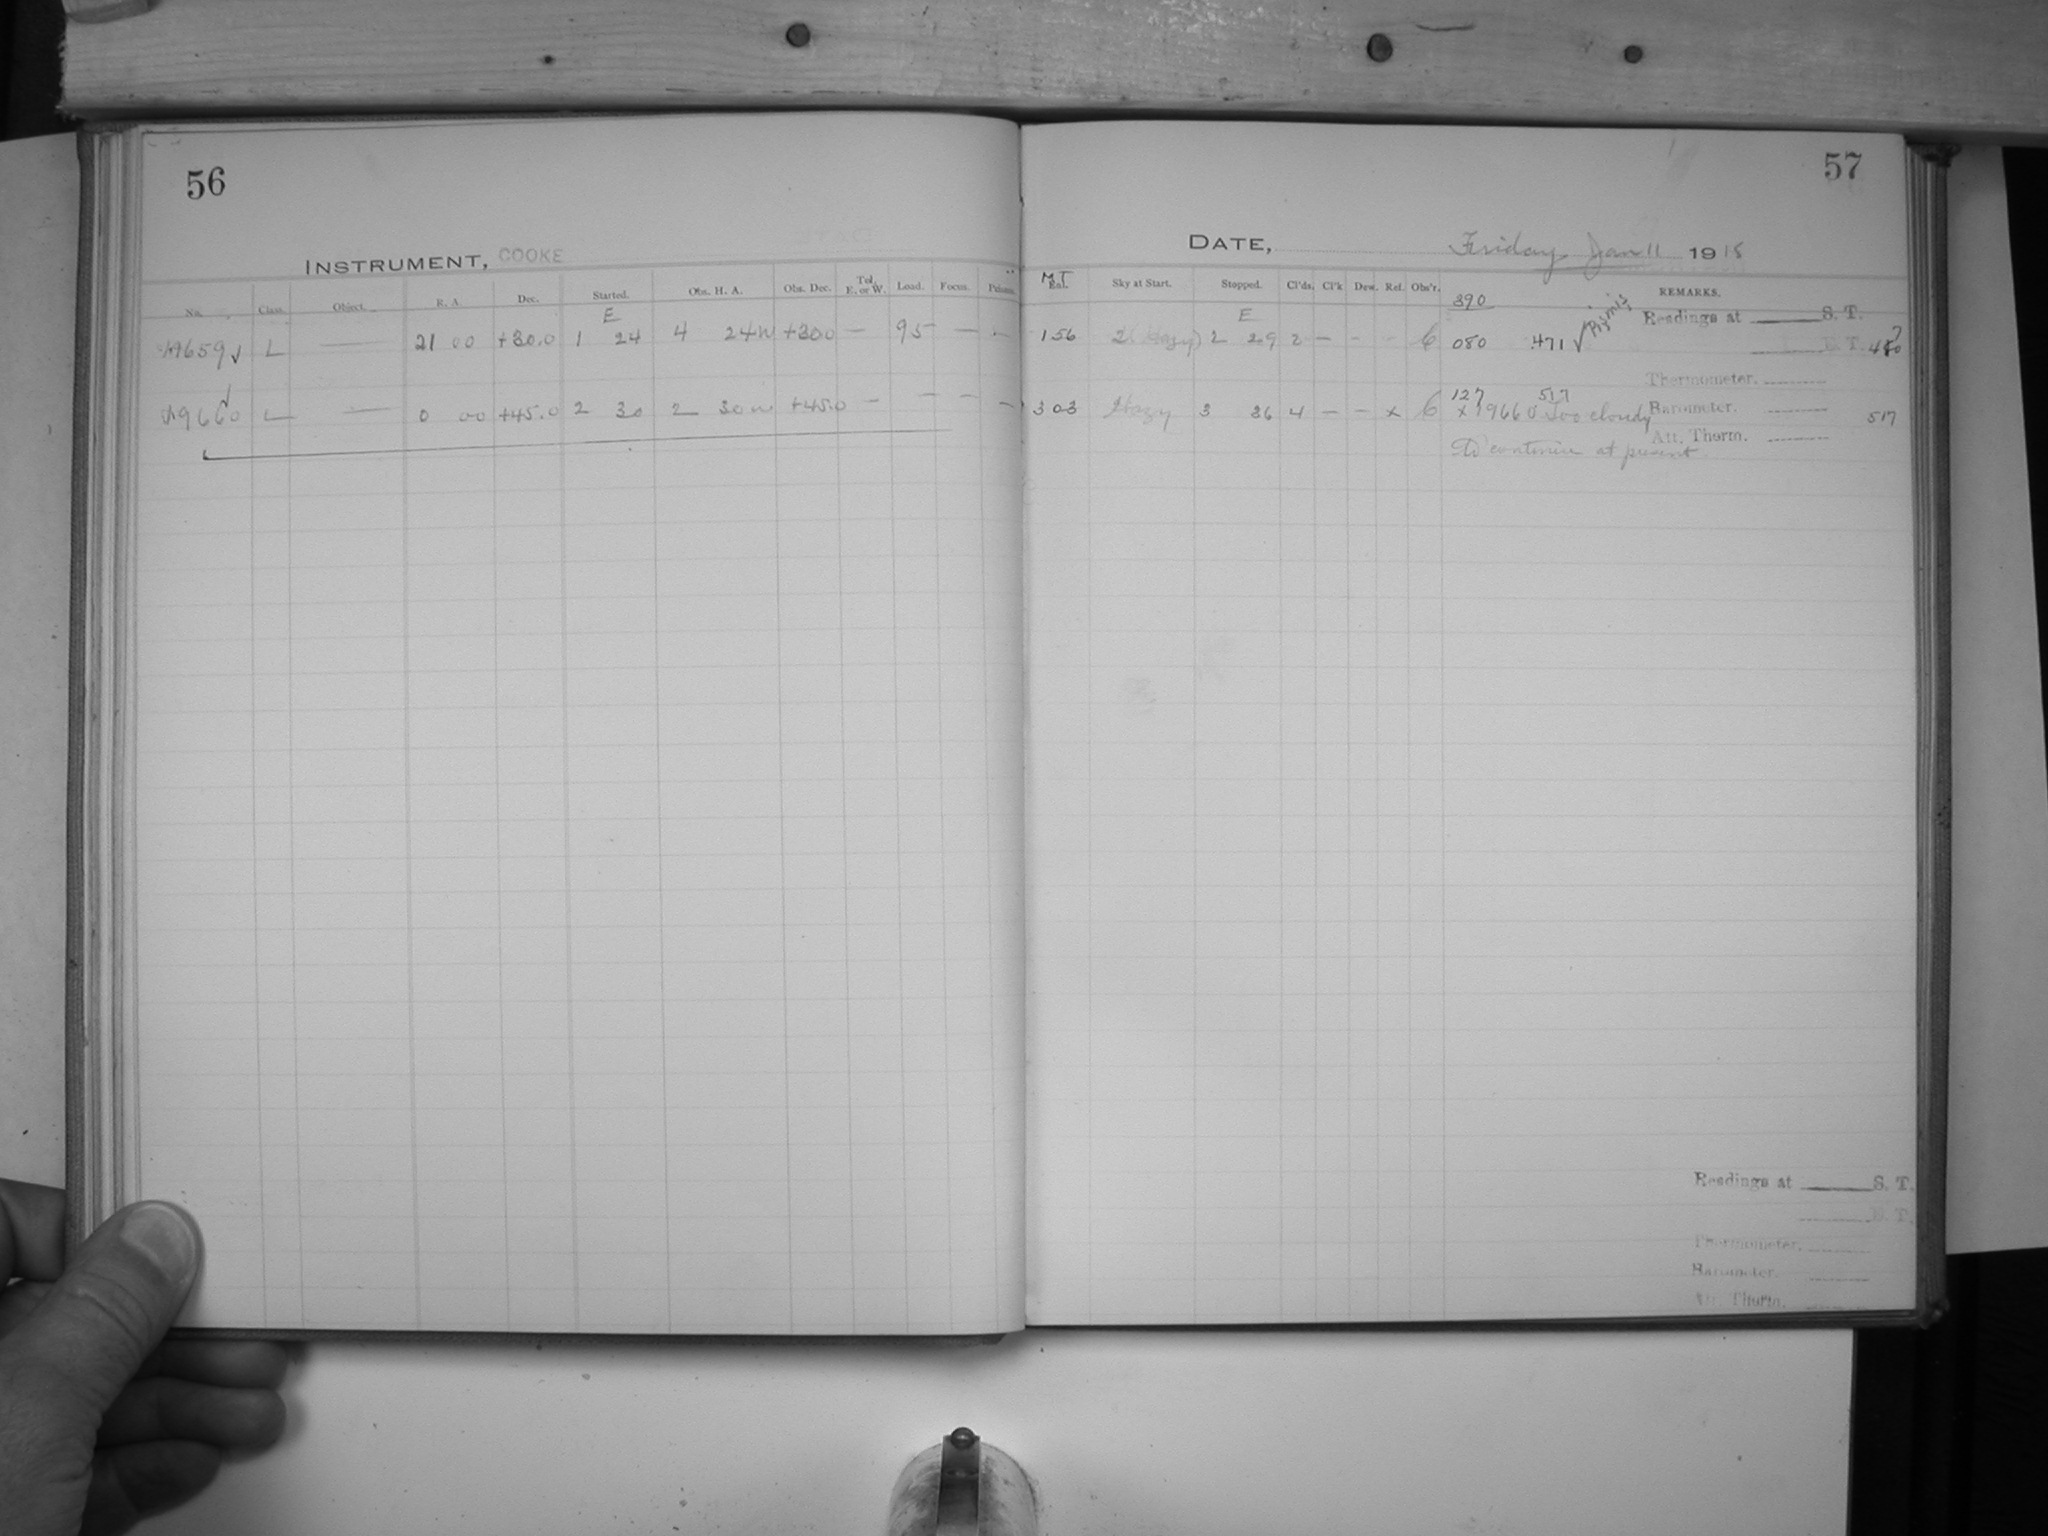 56
INSTRUMENT, COOKE
No. Class. Object. R. A. Dec. Started. Obs. H. A. Obs. Dec. Tel. E. or W. Load. Focus.
E
9659 √ L — 21 00 +30.0 1 24 4 24W +30.0 — 95 — —
9660 √ L — 0 00 +45.0 2 30 2 30W +45.0 — — — —
57
DATE, Friday Jan 11 1918
M.T. Sky at Start. Stopped. Cl'ds. Cl'k Dew. Ref. Obs'r. REMARKS.
E 390
Readings at S. T.
156 2 (Hazy) 2 29 2 — - - 6 080 471 √ 480?
Thermometer.
127 517
303 Hazy 3 36 4 — — x 6 x 9660 Too cloudy Barometer. 517
to continue at present. Att. Therm.
Readings at S. T.
Thermometer.
Barometer.
Att. Therm.